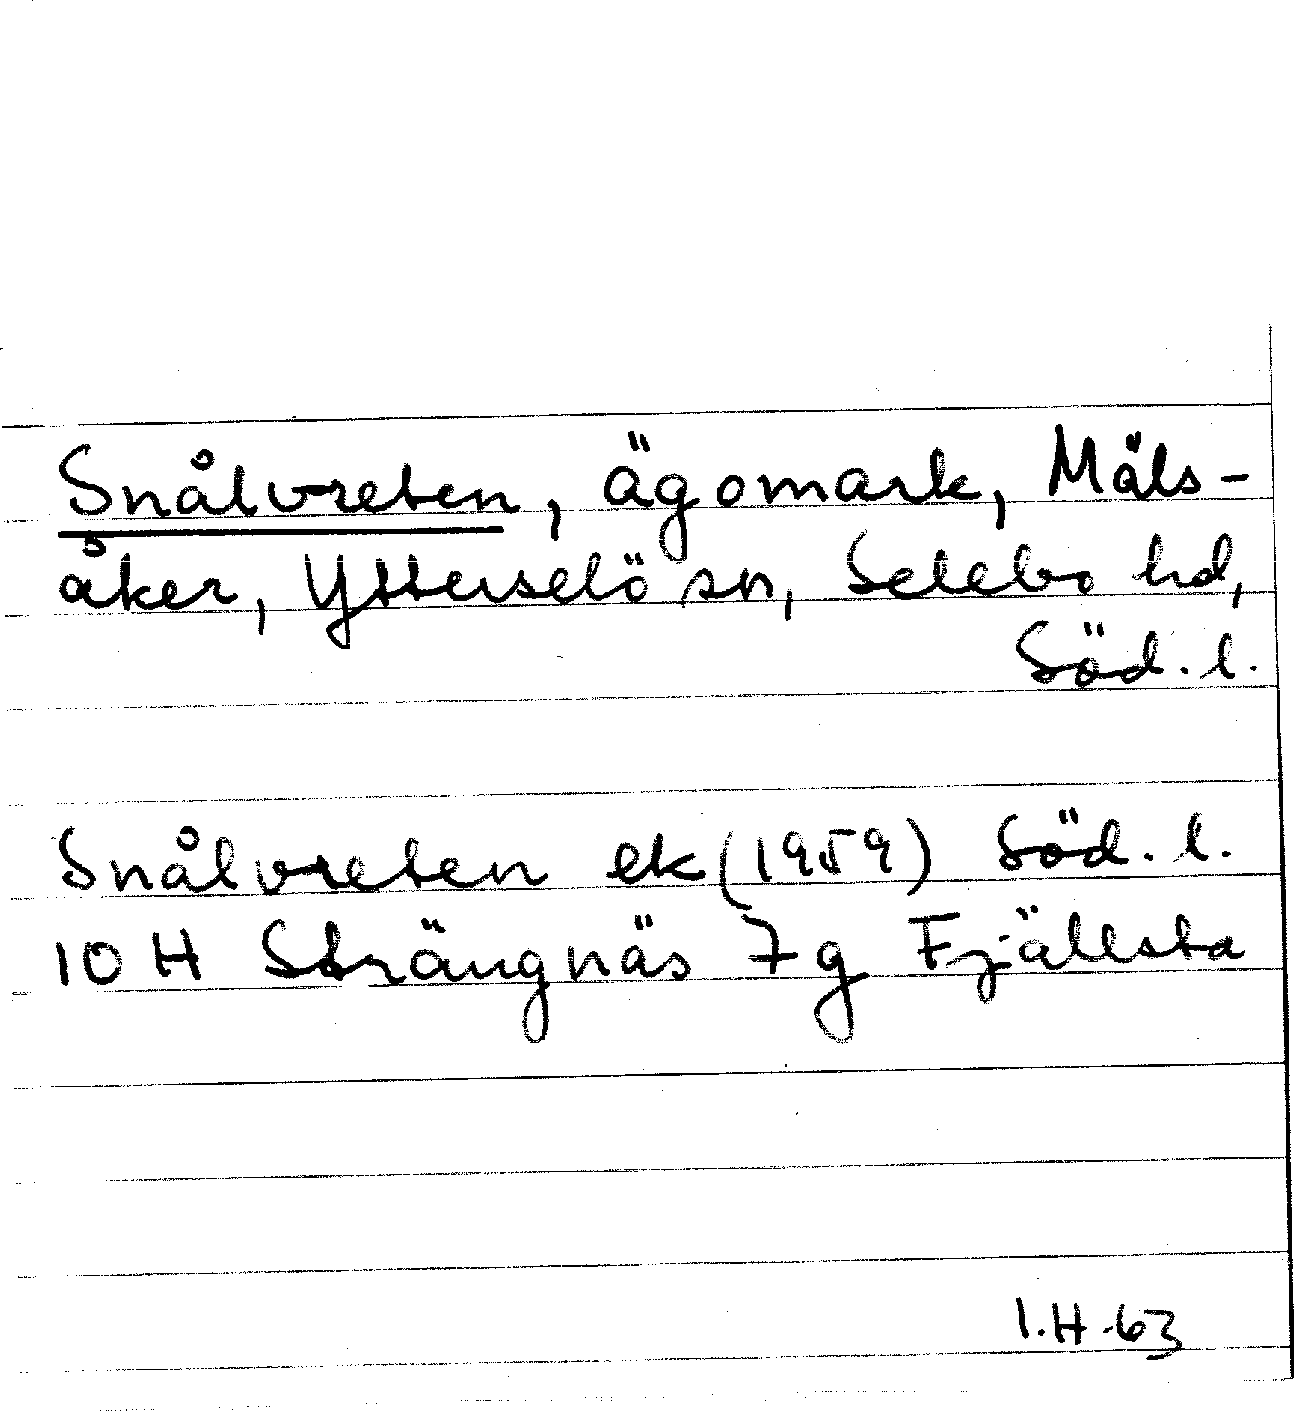 Snålvreten, ägomark, Mäls-
åker, Ytterselö sn, Selebo hd,
Söd. l.
Snålvreten ek (1959) Söd. l.
10 H Strängnäs 7g Fjällsta
I.H.63